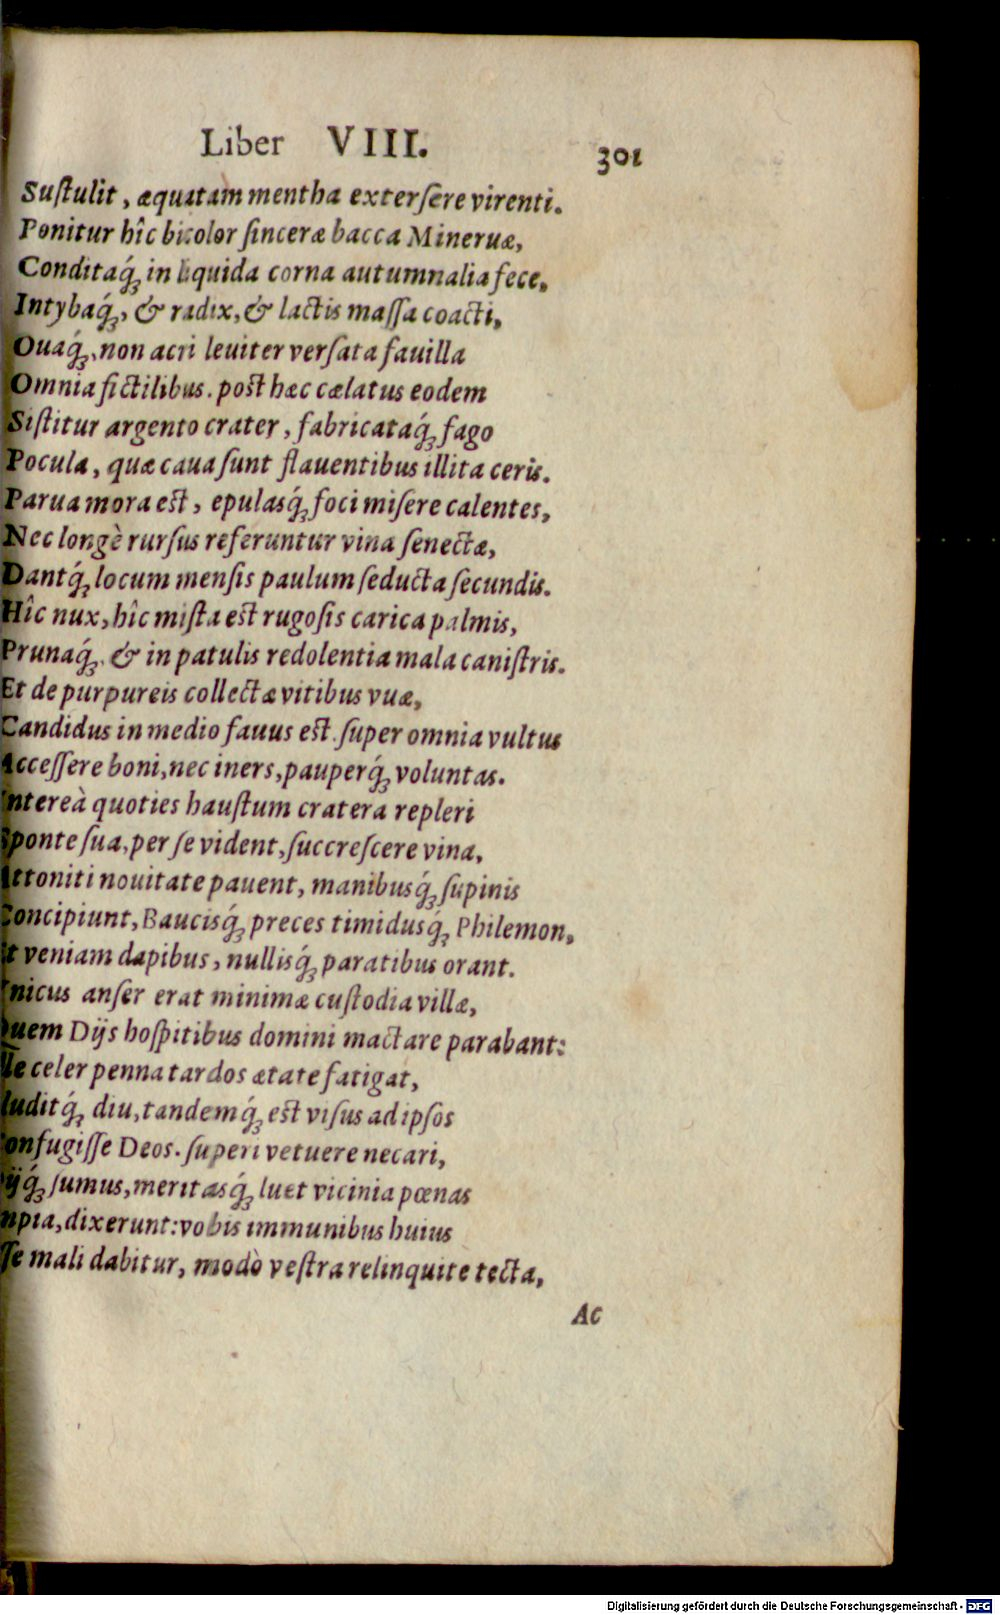 Liber VIII. 301
Suſtulit, æquatam mentha exterſere virenti.
Ponitur hîc bicolor ſinceræ bacca Mineruæ,
Conditaq́; in liquida corna autumnalia fece,
Intybaq́;, & radix, & lactis maſſa coacti,
Ouaq́;, non acri leuiter verſata fauilla
Omnia fictilibus. post hæc cælatus eodem
Siſtitur argento crater, fabricataq́; fago
Pocula, quæ caua ſunt flauentibus illita ceris.
Parua mora est, epulasq́; foci miſere calentes,
Nec longè rurſus referuntur vina ſenectæ,
Dantq́; locum menſis paulum ſeducta ſecundis.
Hîc nux, hîc miſta est rugoſis carica palmis,
Prunaq́;, & in patulis redolentia mala caniſtris.
Et de purpureis collectæ vitibus vuæ,
Candidus in medio fauus est. ſuper omnia vultus
Acceſſere boni, nec iners, pauperq́; voluntas.
Intereà quoties hauſtum cratera repleri
Sponte ſua, per ſe vident, ſuccreſcere vina,
Attoniti nouitate pauent, manibusq́; ſupinis
Concipiunt, Baucisq́; preces timidusq́; Philemon,
Et veniam dapibus, nullisq́; paratibus orant.
Vnicus anſer erat minimæ cuſtodia villæ,
Quem Dijs hoſpitibus domini mactare parabant:
Ille celer penna tardos ætate fatigat,
luditq́; diu, tandemq́; est viſus ad ipſos
Confugiſſe Deos. ſuperi vetuere necari,
Dijq́; ſumus, meritasq́; luet vicinia pœnas
mpia, dixerunt: vobis immunibus huius
ſſe mali dabitur, modò veſtra relinquite tecta,
Ac
Digitalisierung gefördert durch die Deutsche Forschungsgemeinschaft - DFG